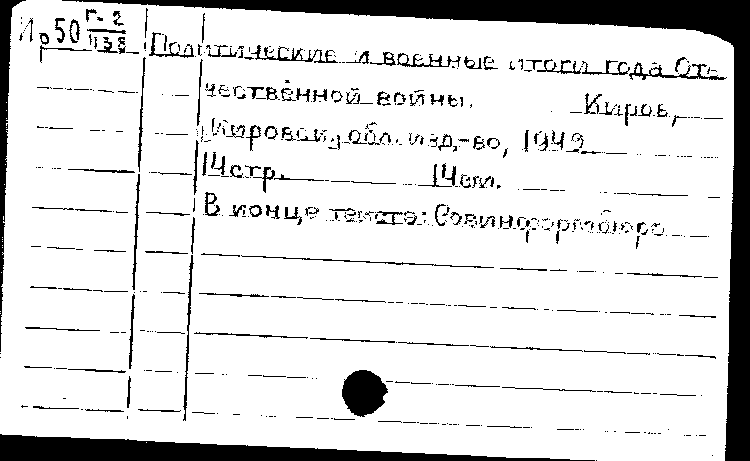 И 50 Г-2
1138
Политические и военные итоги года Оте-
чественной войны. Киров,
[Кировск.] обл. изд-во, 1942.
14 стр. 14 см.
В конце текста: Совинформбюро